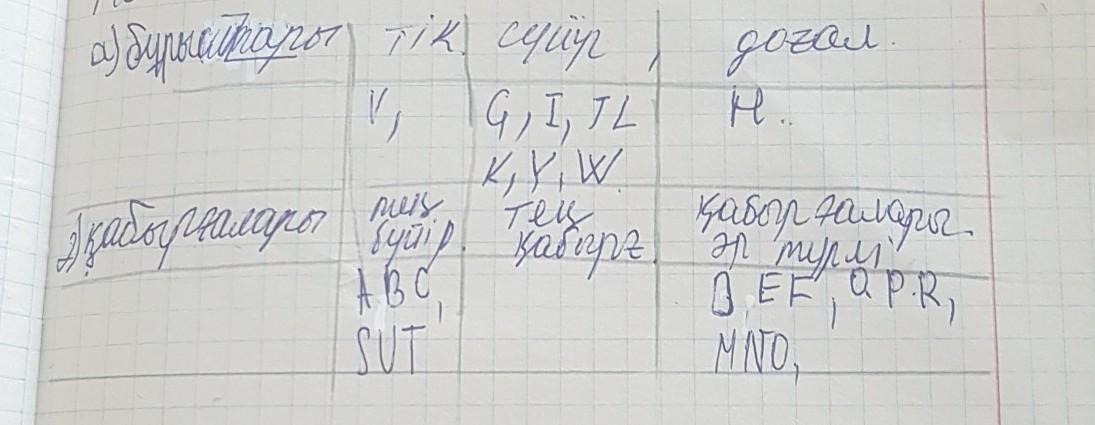 а) бұрыштары тік. сүйір, доғал.
V, G, I, JL H..
K, Y, W.
ә) қабырғалары тең бүйір. тең қабырғ. қабырғалары әр түрлі
A B C, D, E F, Q. P. R,
SUT MNO,